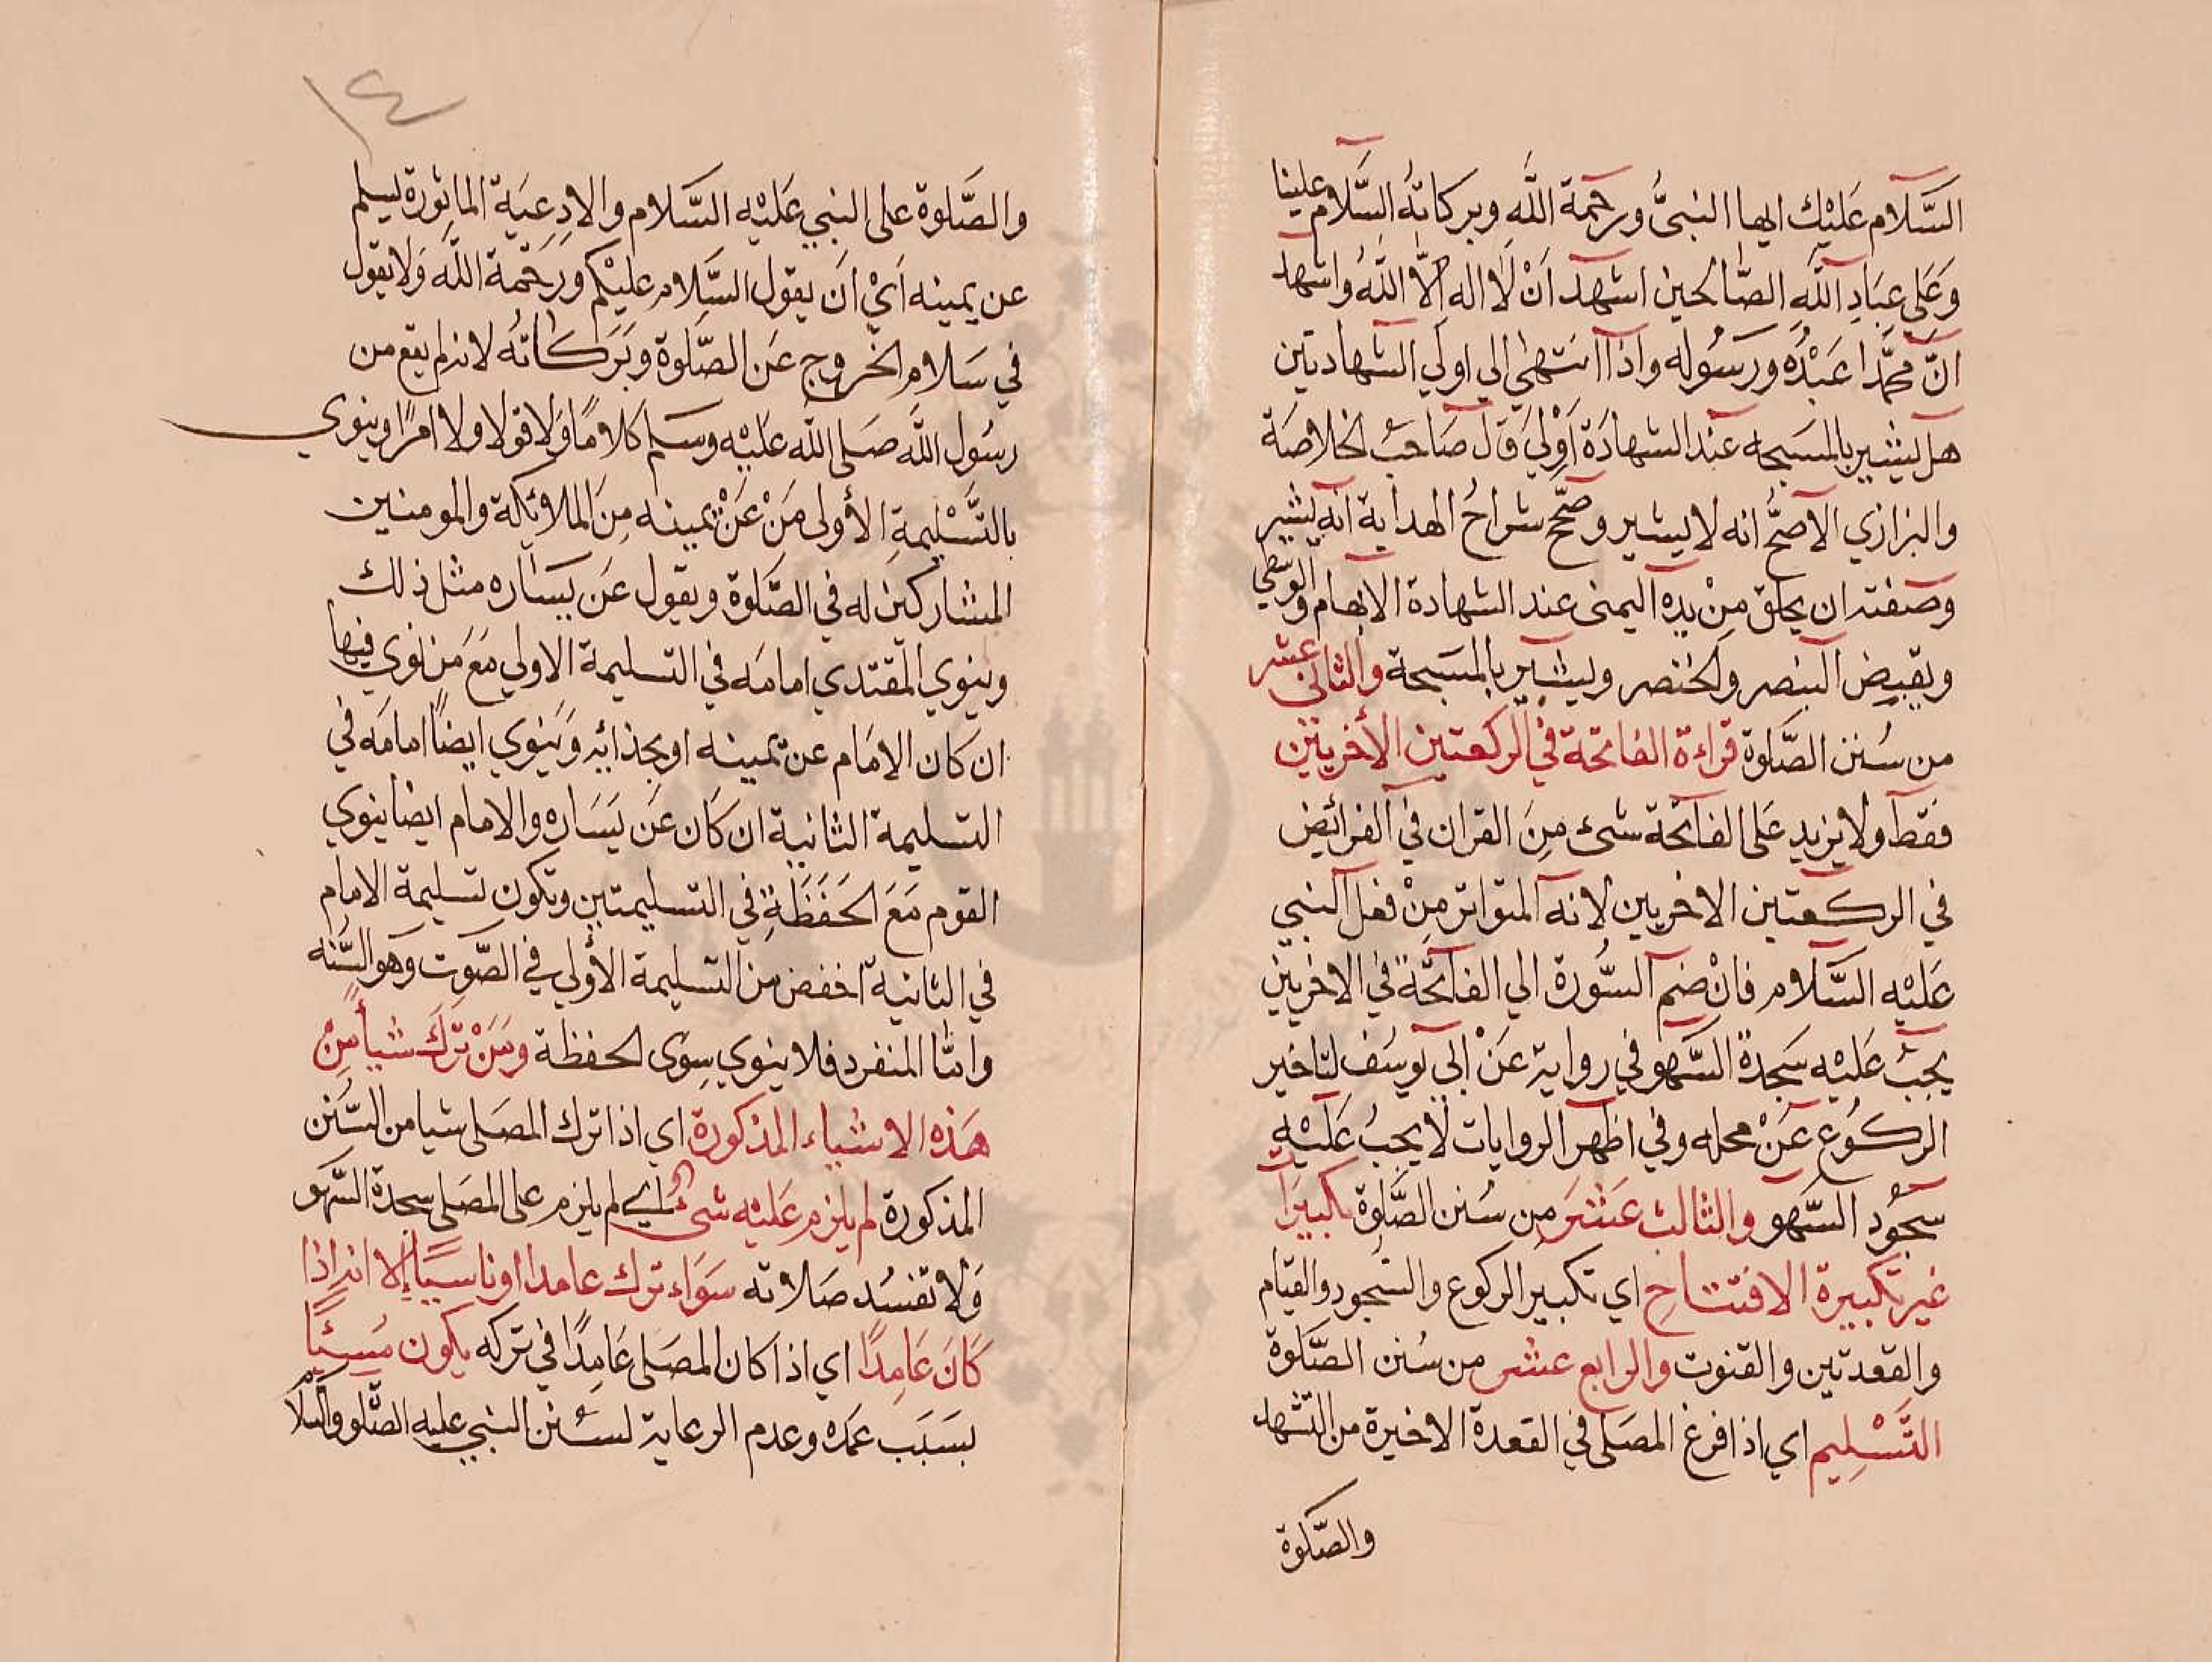 السَّلام عَلَيْك ايها النبىُّ ورحمة اللّه وبركاتهُ السَّلام علينا
وَعَلى عِبَادِ اللّهِ الصّالحين اشهد اَنْ لَا اله الّا اللّهُ واشهد
انّ محمَّدا عَبْدُه ورَسُوله واذا انتهىٰ الي اولَي الشهادتين
هل يشير بالمسَبحه عند الشهادَة اَوْليَ قَال صَاحبُ الخلاصَة
والبزازي الاصحُّ انه لا يشير وصحّح شراحُ الهداية انه يشير
وصفته ان يحلق مِنْ يده اليمنى عند الشهادة الابهام والوسطي
ويقبض البنصر والخنصر ويشير بالمسَبحة والثانى عشر
من سُنن الصَّلوة قراءة الفاتحة في الركعتين الأخريين
فقط ولا يزيد عَلى الفاتحة شىء مِنَ القران في الفرائض
في الركعتين الاخريين لانه المتواتر مِنْ فعل النبي
عَليْه السَّلام فانْ ضم السُّورة الي الفاتحة في الاخريين
يجبُ عَليْه سَجدة السَّهو في رواية عَنْ ابي يوسُف لتاخير
الركوُع عَنْ محله وفي اظهر الروايات لَا يجبُ عَليْهِ
سجُود السَّهو والثالث عَشَرَ مِن سُنن الصَّلوة تكبيرَات
غير تكبيرة الافتتاحِ اي تكبير الركوع والسُّجود والقيام
والقعدتين والقنوت والرابع عشر من سُنن الصَّلوة
التَّسْلِيم اي اذا فرغ المصَلي في القعدة الاخيرة من التشهد
والصَّلوة
١٤
والصَّلوة على النبي عَليْه السَّلام والادعِيَة الماثورة يسلم
عن يمينه اَيْ اَن يقول السَّلام عليْكم ورَحْمة اللّه وَلا يقول
في سَلام الخروج عَن الصَّلوة وبَرَكاتهُ لانه لم يقع من
رسُول اللَّه صَلى اللّه عَليْه وسَلم كلامًا وَلَا قولا ولا امرًا وينوي
بالتَّسْليمةِ الأولى مَنْ عَنْ يمينه مِنَ الملائكة والمومنين
المشاركين له في الصَّلوة ويقول عَن يسَاره مثل ذلك
وينوي المقتدي امامَه في التسليمة الاولي مَعَ مَن نوي فيها
ان كان الامَام عن يمينه او بحذائه وَيَنوي ايضاً امامَه في
التسليمة الثانية ان كَان عَن يَسَاره والامام ايضا ينوي
القوم مَعَ الحَفَظَةِ في التسليمتين وتكون تسليمة الامام
في الثانية اخفض من التسليمة الأولي في الصَّوت وهو السُّنه
وامّا المنفرد فلا ينوي سِوَى الحفظة وَمَنْ تَرَكَ شيأً مِنْ
هَذه الاشياء المذكورة اي اذا ترك المصَلى شيا من السُّنن
المذكورة لم يلزم عَليْه شىءٌ اي لم يلزم على المصَلى سجدة السَّهو
وَلا تفسُد صَلاته سَوَاء ترك عامدا او ناسيًا إلا انه اذا
كَانَ عَامِدًا اي اذا كان المصَلى عَامِدًا في تركه يكون مُسيئًا
بسَبَب عمَده وعدم الرعاية لسُنن النبي عليه الصَّلو والسّلام